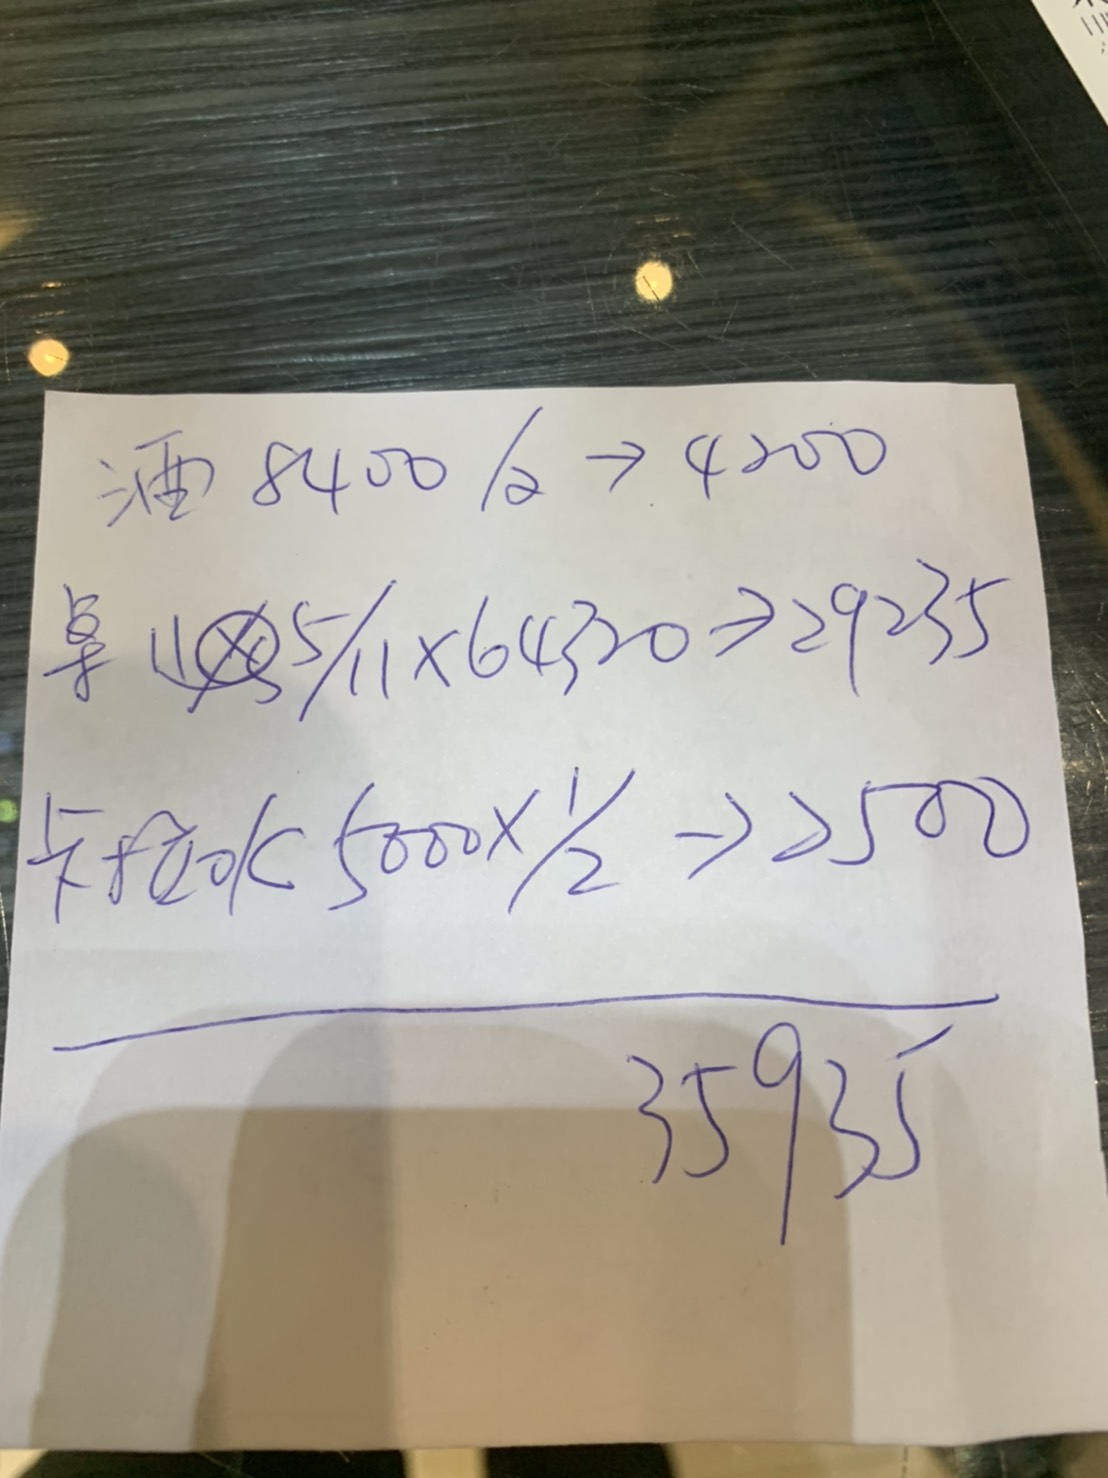 酒 8400/2 → 4200
桌 5/11×64320→29235
卡拉OK 5000×1/2 → 2500
35935